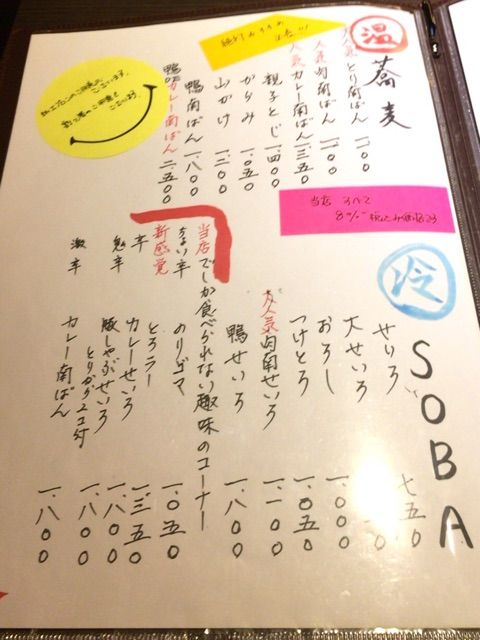 温
蕎麦
人気とり南ばん 一、一〇〇
人気肉南ばん 一、一〇〇
人気カレー南ばん 一、三五〇
親子とじ 一、四〇〇
からみ 一、〇五〇
山かけ 一、三〇〇
鴨南ばん 一、八〇〇
鴨カレー南ばん 二、五〇〇
当店 すべて
8%税込み価格です
冷
SOBA
せいろ 七五〇
大せいろ
おろし 一、〇〇〇
つけとろ 一、〇五〇
大人気 肉南せいろ 一、一〇〇
鴨せいろ 一、八〇〇
当店でしか食べられない趣味のコーナー
ちょい辛 のりゴマ 一、〇五〇
新感覚 とろラー
辛 カレーせいろ 一、三五〇
鬼辛 豚しゃぶせいろ 一、八〇〇
とりから2コ付 一、八〇〇
激辛 カレー南ばん 一、八〇〇